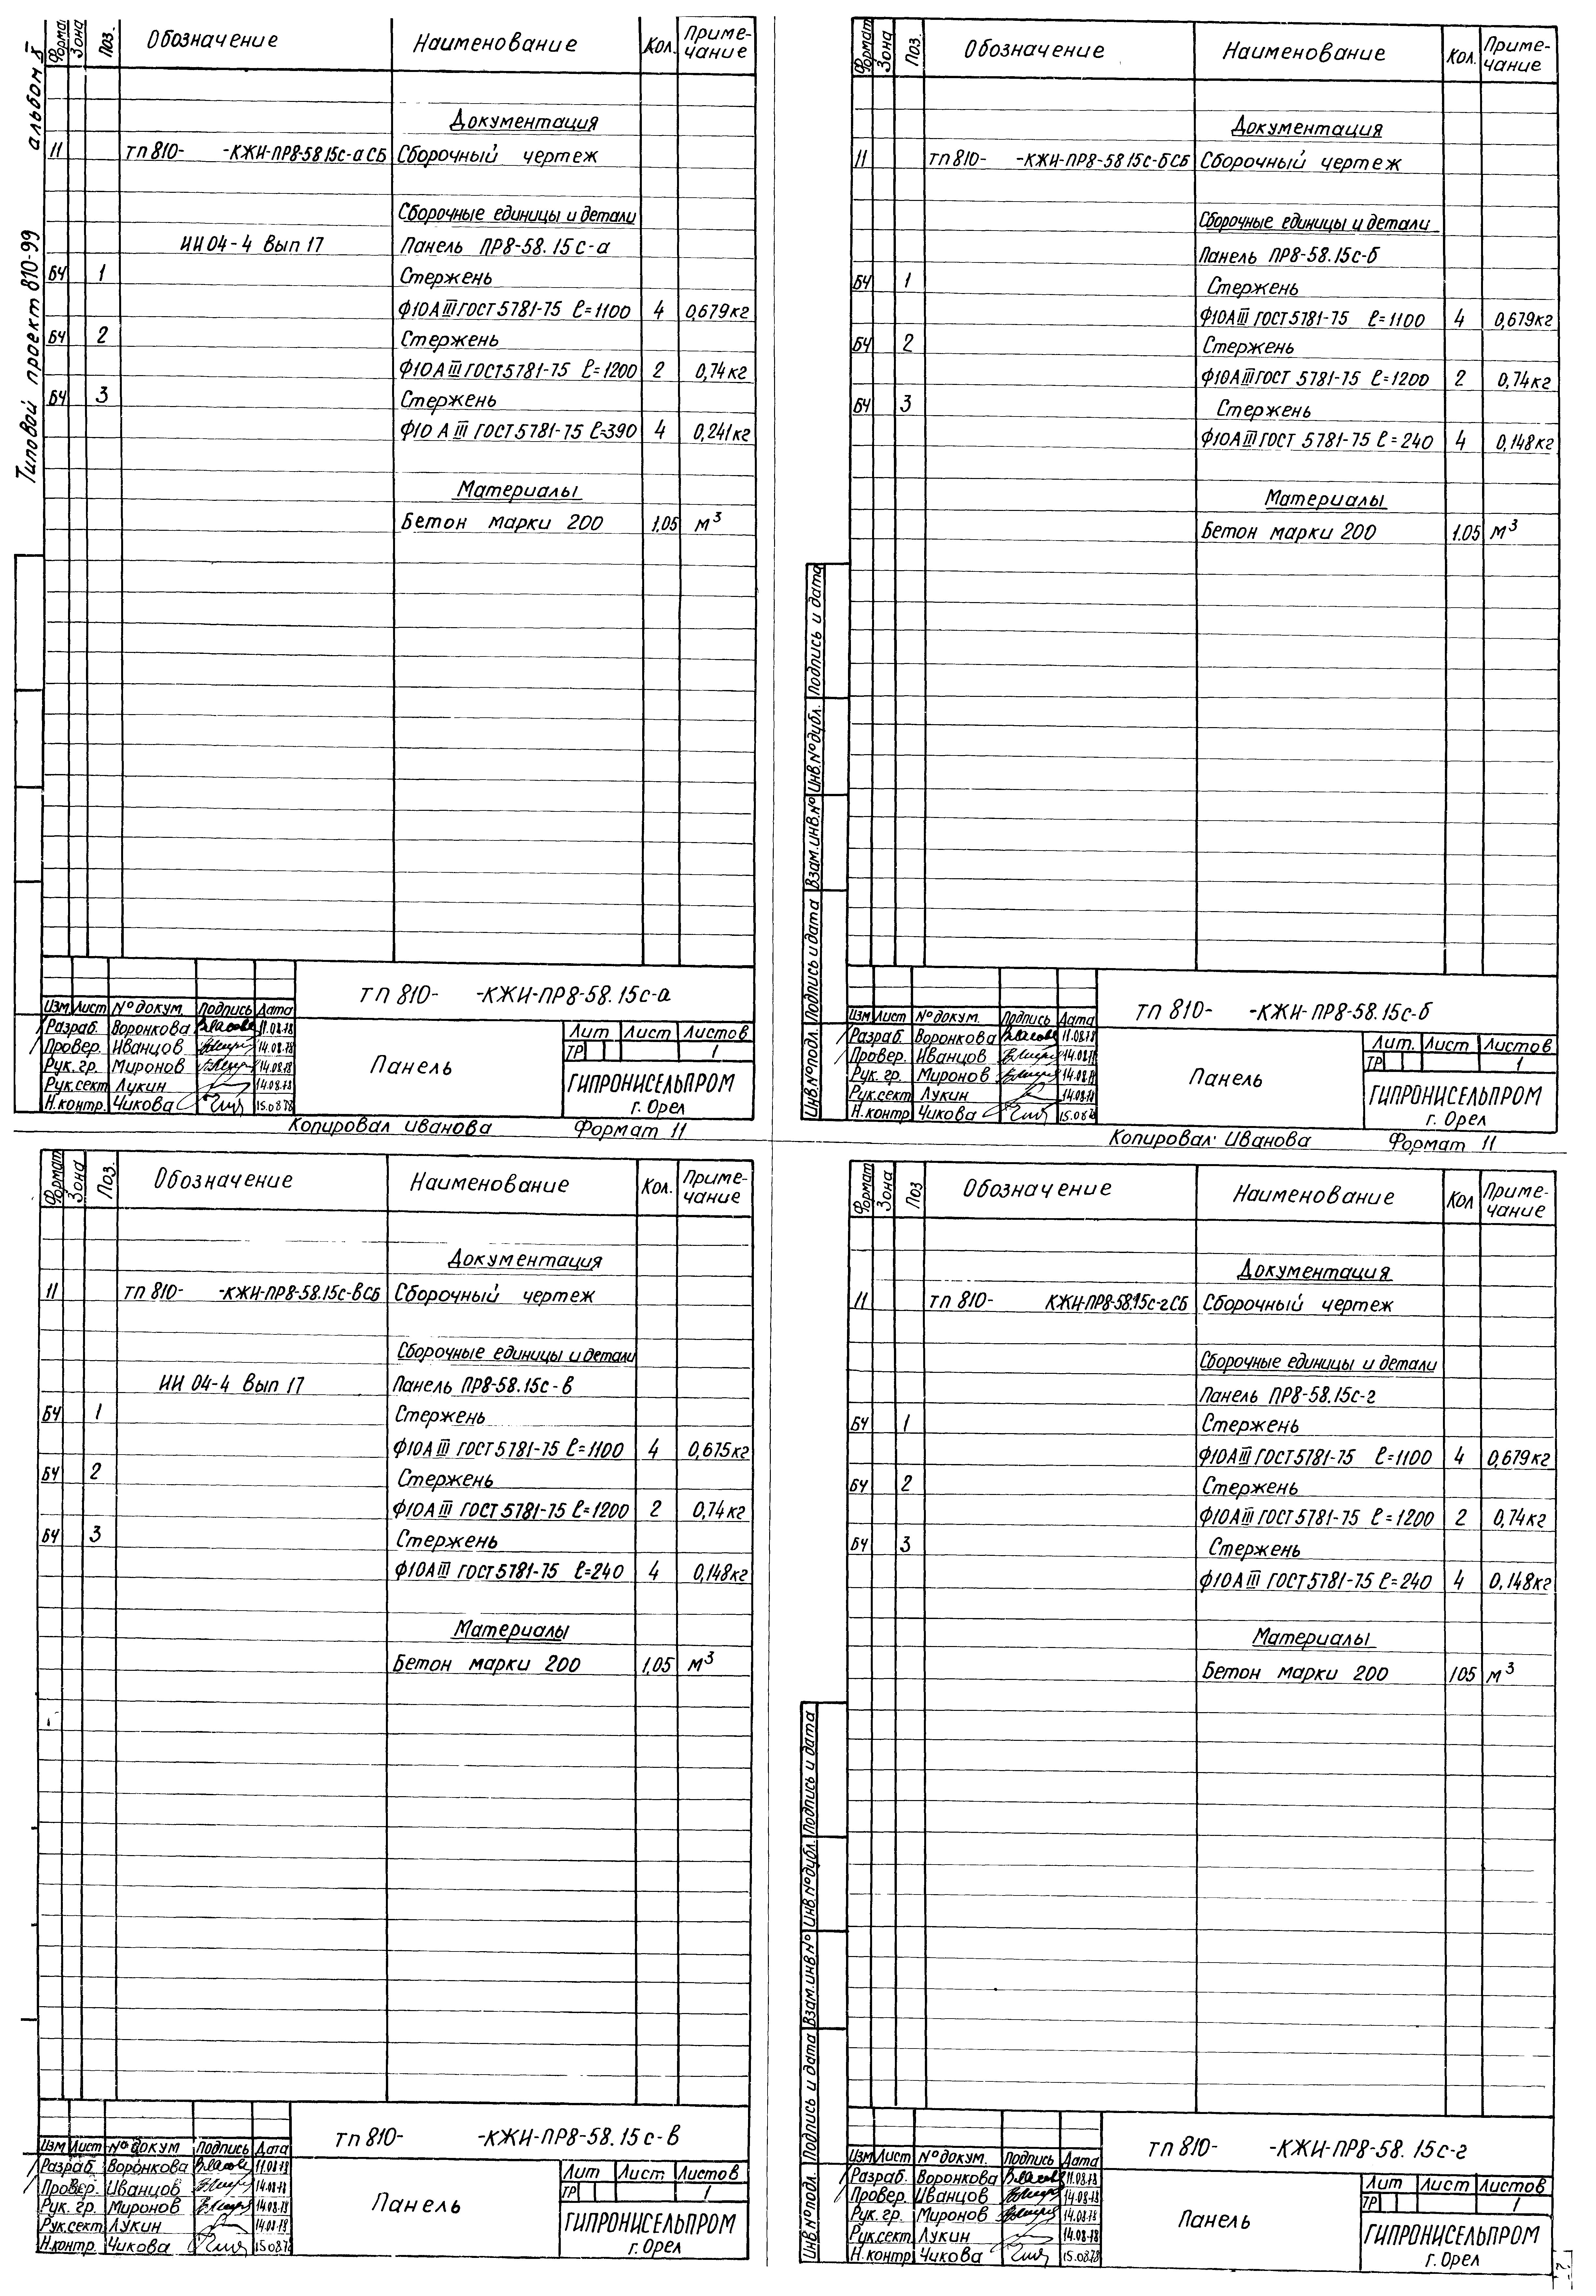 Типовой проект 810-99 альбом X
Формат Зона Поз. Обозначение Наименование Кол. Приме-
чание
Документация
11 тп 810- -КЖИ-ПР8-58 15с-а СБ Сборочный чертеж
Сборочные единицы и детали
ИИ 04-4 Вып 17 Панель ПР8-58. 15 с-а
БЧ 1 Стержень
Ф10 А III ГОСТ 5781-75 ℓ=1100 4 0,679 кг
БЧ 2 Стержень
Ф10 А III ГОСТ 5781-75 ℓ=1200 2 0,74 кг
БЧ 3 Стержень
Ф10 А III ГОСТ 5781-75 ℓ=390 4 0,241 кг
Материалы
Бетон марки 200 1,05 м³
тп 810- -КЖИ-ПР8-58. 15с-а
Изм Лист № докум. Подпись Дата
Разраб. Воронкова 11.08.78
Провер. Иванцов 14.08.78
Рук. гр. Миронов 14.08.78
Рук.сект Лукин 14.08.78
Н.контр. Чикова 15.08.78
Панель
Лит Лист Листов
ТР 1
ГИПРОНИСЕЛЬПРОМ
г. Орел
Копировал Иванова Формат 11
Формат Зона Поз. Обозначение Наименование Кол. Приме-
чание
Документация
11 тп 810- -КЖИ-ПР8-58 15с-б СБ Сборочный чертеж
Сборочные единицы и детали
Панель ПР8-58.15с-б
БЧ 1 Стержень
Ф10 А III ГОСТ 5781-75 ℓ=1100 4 0,679 кг
БЧ 2 Стержень
Ф10 А III ГОСТ 5781-75 ℓ=1200 2 0,74 кг
БЧ 3 Стержень
Ф10 А III ГОСТ 5781-75 ℓ=240 4 0,148 кг
Материалы
Бетон марки 200 1.05 м³
Инв.№ подл. Подпись и дата Взам.инв.№ Инв.№ дубл. Подпись и дата
тп 810- -КЖИ-ПР8-58.15с-б
Изм Лист № докум. Подпись Дата
Разраб. Воронкова 11.08.78
Провер. Иванцов 14.08.78
Рук. гр. Миронов 14.08.78
Рук.сект Лукин 14.08.78
Н.контр Чикова 15.08.78
Панель
Лит. Лист Листов
ТР 1
ГИПРОНИСЕЛЬПРОМ
г. Орел
Копировал: Иванова Формат 11
Формат Зона Поз. Обозначение Наименование Кол. Приме-
чание
Документация
11 тп 810- -КЖИ-ПР8-58.15с-в СБ Сборочный чертеж
Сборочные единицы и детали
ИИ 04-4 Вып 17 Панель ПР8-58.15с-в
БЧ 1 Стержень
Ф10 А III ГОСТ 5781-75 ℓ=1100 4 0,675 кг
БЧ 2 Стержень
Ф10 А III ГОСТ 5781-75 ℓ=1200 2 0,74 кг
БЧ 3 Стержень
Ф10 А III ГОСТ 5781-75 ℓ=240 4 0,148 кг
Материалы
Бетон марки 200 1,05 м³
тп 810- -КЖИ-ПР8-58. 15 с-в
Изм Лист № докум Подпись Дата
Разраб. Воронкова 11.08.78
Провер. Иванцов 14.08.78
Рук. гр. Миронов 14.08.78
Рук.сект Лукин 14.08.78
Н.контр. Чикова 15.08.78
Панель
Лит Лист Листов
ТР 1
ГИПРОНИСЕЛЬПРОМ
г. Орел
Формат Зона Поз Обозначение Наименование Кол Приме-
чание
Документация
11 тп 810- КЖИ-ПР8-58.15с-г СБ Сборочный чертеж
Сборочные единицы и детали
Панель ПР8-58.15с-г
БЧ 1 Стержень
Ф10 А III ГОСТ 5781-75 ℓ=1100 4 0,679 кг
БЧ 2 Стержень
Ф10 А III ГОСТ 5781-75 ℓ=1200 2 0,74 кг
БЧ 3 Стержень
Ф10 А III ГОСТ 5781-75 ℓ=240 4 0,148 кг
Материалы
Бетон марки 200 105 м³
Инв.№ подл. Подпись и дата Взам.инв.№ Инв.№ дубл. Подпись и дата
тп 810- -КЖИ-ПР8-58. 15с-г
Изм Лист № докум. Подпись Дата
Разраб. Воронкова 11.08.78
Провер. Иванцов 14.08.78
Рук. гр. Миронов 14.08.78
Рук.сект Лукин 14.08.78
Н.контр Чикова 15.08.78
Панель
Лит Лист Листов
ТР 1
ГИПРОНИСЕЛЬПРОМ
г. Орел